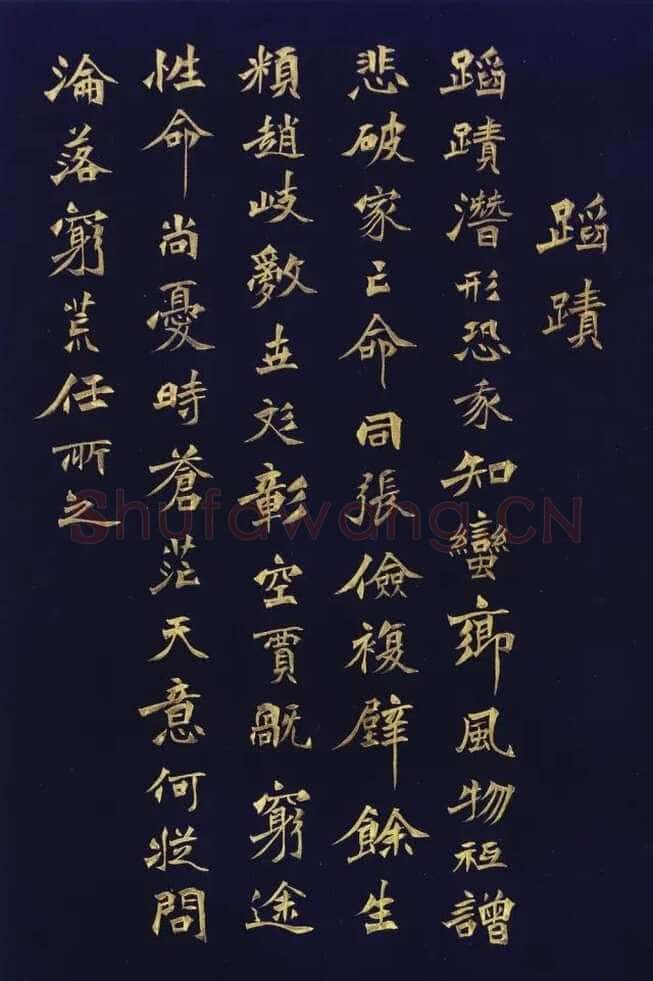 蹈蹟
蹈蹟潛形恐知蠻鄉風物祗譄
悲破家亡命同張儉複壁餘生
頪趙岐數世彣彰空賈旤窮途
性命尚憂時蒼茫天意何從問
淪落窮荒任所之
Shufawang.CN